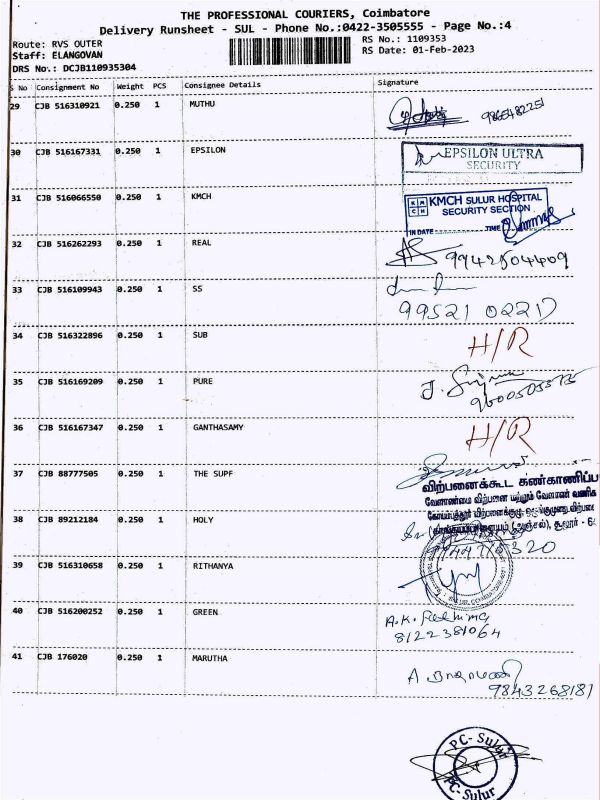 THE PROFESSIONAL COURIERS, Coimbatore
Delivery Runsheet - SUL - Phone No.:0422-3505555 - Page No.:4
Route: RVS OUTER
RS No.: 1109353
Staff: ELANGOVAN
RS Date: 01-Feb-2023
DRS No.: DCJB110935304
S No Consignment No Weight PCS Consignee Details Signature
29 CJB 516310921 0.250 1 MUTHU
30 CJB 516167331 0.250 1 EPSILON EPSILON ULTRA
SECURITY
31 CJB 516066550 0.250 1 KMCH KMCH SULUR HOSPITAL
SECURITY SECTION
IN DATE TIME
32 CJB 516262293 0.250 1 REAL 9942504409
33 CJB 516109943 0.250 1 SS
99521 02217
34 CJB 516322896 0.250 1 SUB H/R
35 CJB 516169209 0.250 1 PURE
36 CJB 516167347 0.250 1 GANTHASAMY H/R
37 CJB 88777505 0.250 1 THE SUPF
விற்பனைக்கூட கண்காணிப்ப
வேளாண்மை விற்பனை மற்றும் வேளாண் வணிக
38 CJB 89212184 0.250 1 HOLY
39 CJB 516310658 0.250 1 RITHANYA
40 CJB 516200252 0.250 1 GREEN
8122381064
41 CJB 176020 0.250 1 MARUTHA
9843268181
PC-Sulur
PC-Sulur